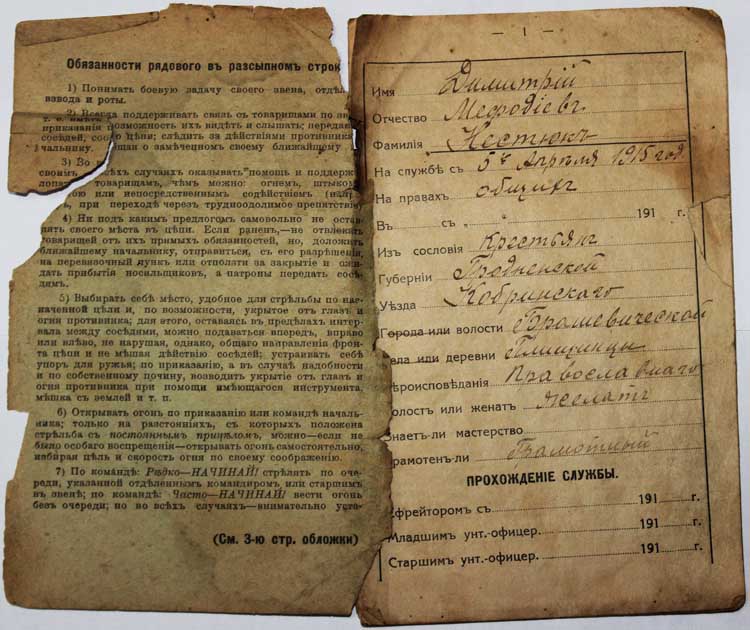 Обязанности рядового въ разсыпномъ строю
1) Понимать боевую задачу своего звена, отдѣ
взвода и роты.
2) Всегда поддерживать связь съ товарищами по зв
т. е. имѣть
приказанія возможность ихъ видѣть и слышать; передав
сосѣдей, сою цѣпи; слѣдить за дѣйствіями противника
чальнику. щая о замѣченномъ своему ближайшему
3) Во
своимъ всѣхъ случаяхъ оказывать помощь и поддерж
лопат товарищамъ, чѣмъ можно: огнемъ, штыко
ою или непосредственнымъ содѣйствіемъ
при переходѣ черезъ труднодоодимое препятствіе
4) Ни подъ какимъ предлогомъ самовольно не остав
лять своего мѣста въ цѣпи. Если раненъ,—не отвлекать
товарищей отъ ихъ прямыхъ обязанностей, но, доложить
ближайшему начальнику, отправиться, съ его разрѣшенія,
на перевязочный пунктъ или отползти за закрытіе и ожи-
дать прибытія носильщиковъ, а патроны передать сосѣ-
дямъ.
5) Выбирать себѣ мѣсто, удобное для стрѣльбы по наз-
наченной цѣли и, по возможности, укрытое отъ глазъ и
огня противника; для этого, оставаясь въ предѣлахъ интер-
вала между сосѣдями, можно подаваться впередъ, вправо
или влѣво, не нарушая, однако, общаго направленія фрон-
та цѣпи и не мѣшая дѣйствію сосѣдей; устраивать себѣ
упоръ для ружья; по приказанію, а въ случаѣ надобности
и по собственному почину, возводить укрытіе отъ глазъ и
огня противника при помощи имѣющагося инструмента,
мѣшка съ землей и т. п.
6) Открывать огонь по приказанію или командѣ началь-
ника; только на разстояніяхъ, съ которыхъ положена
стрѣльба съ постояннымъ прицѣломъ, можно—если не
было особаго воспрещенія—открывать огонь самостоятельно,
избирая цѣль и скорость огня по своему соображенію.
7) По командѣ: Рѣдко—НАЧИНАЙ! стрѣлять по оче-
реди, указанной отдѣленнымъ командиромъ или старшимъ
въ звенѣ; по командѣ: Часто—НАЧИНАЙ! вести огонь
безъ очереди; но во всѣхъ случаяхъ—внимательно уста-
(См. 3-ю стр. обложки)
— 1 —
Имя Димитрій
Отчество Мефодіевъ
Фамилія Кестюкъ
На службѣ съ 5го Апрѣля 1915 год.
На правахъ общихъ
Въ съ 191 г.
Изъ сословія Крестьянъ
Губерніи Гродненской
Уѣзда Кобринскаго
Города или волости Брашевической
ела или деревни
ѣроисповѣданія Православнаго
олостъ или женатъ
Знаетъ-ли мастерство
рамотенъ-ли Грамотный
ПРОХОЖДЕНІЕ СЛУЖБЫ.
Ефрейторомъ съ 191 г.
Младшимъ унт.-офицер. 191 г.
Старшимъ унт.-офицер. 191 г.